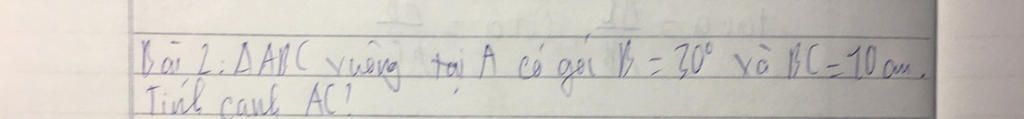 Bài 2: ΔABC vuông tại A có góc B = 30° và BC = 10 cm.
Tính cạnh AC?